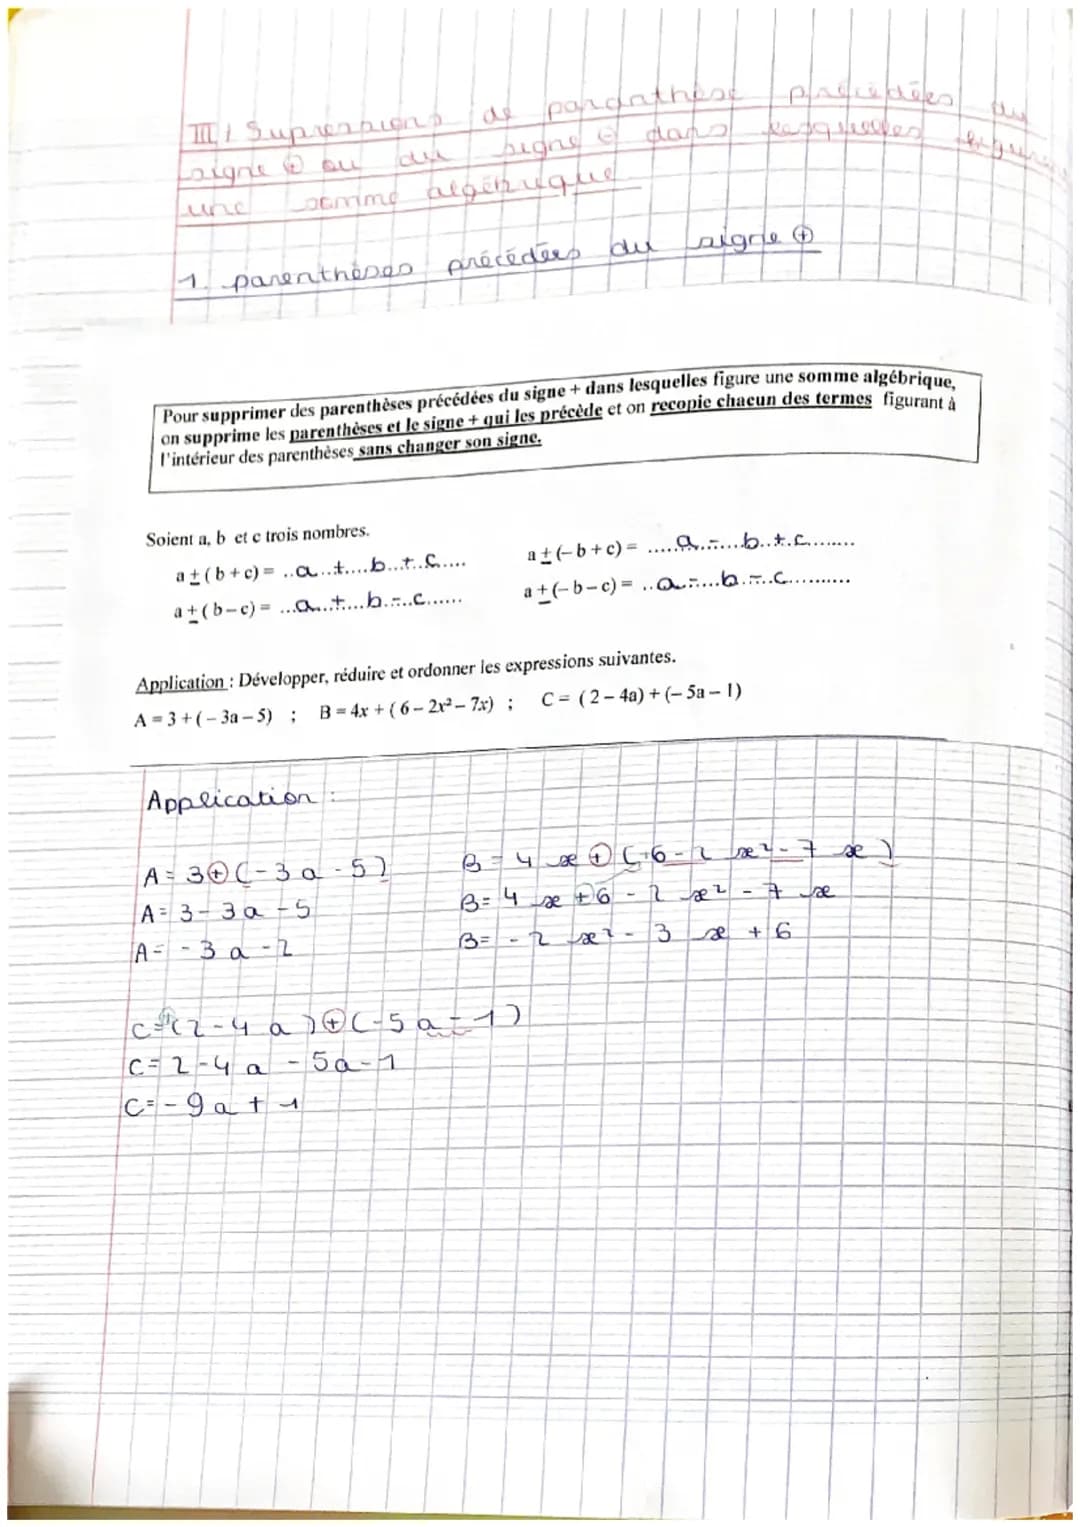 III / Supressions de paranthèse précédées du
signe ⊕ ou du signe ⊖ dans lesquelles figure
une somme algébrique
1. parenthèses précédées du signe ⊕
Pour supprimer des parenthèses précédées du signe + dans lesquelles figure une somme algébrique,
on supprime les parenthèses et le signe + qui les précède et on recopie chacun des termes figurant à
l'intérieur des parenthèses sans changer son signe.
Soient a, b et c trois nombres.
a + ( b + c) = ..a...+....b...+..c..... a + (– b + c) = .....a...-...b..+.c........
a + ( b – c) = ...a...+....b.-..c...... a + (– b – c) = ..a.-...b.-..c..........
Application : Développer, réduire et ordonner les expressions suivantes.
A = 3 + (– 3a – 5) ; B = 4x + ( 6 – 2x² – 7x) ; C = ( 2 – 4a) + (– 5a – 1)
Application :
A = 3 ⊕ (- 3 a - 5) B = 4 x ⊕ (+6 - 2 x² - 7 x)
A = 3 - 3 a - 5 B = 4 x + 6 - 2 x² - 7 x
A = - 3 a - 2 B = - 2 x² - 3 x + 6
C = (2 - 4 a) ⊕ (-5 a - 1)
C = 2 - 4 a - 5a - 1
C = - 9 a + 1